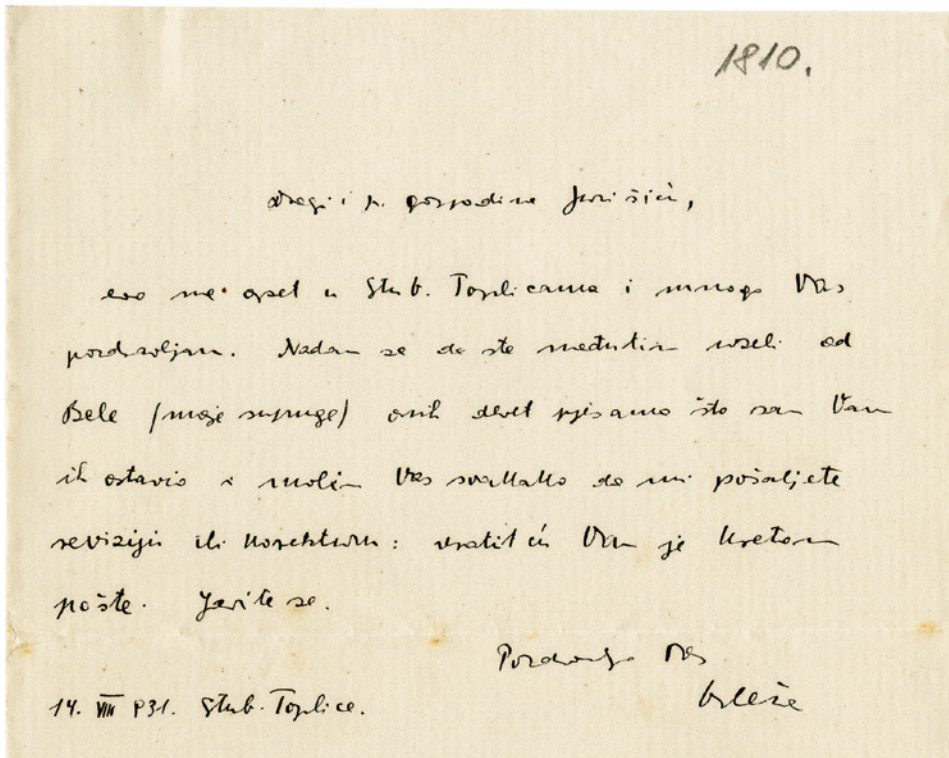 1810.
dragi i p. gospodine Jurišiću,
evo me opet u Stub. Toplicama i mnogo Vas
pozdravljam. Nadam se da ste međutim uzeli od
Bele (moje supruge) onih devet pjesama što sam Vam
ih ostavio i molim Vas svakako da mi pošaljete
reviziju ili korekturu: vratit ću Vam je kretom
pošte. Javite se.
Pozdravlja Vas
Krleža
14. VIII 931. Stub. Toplice.